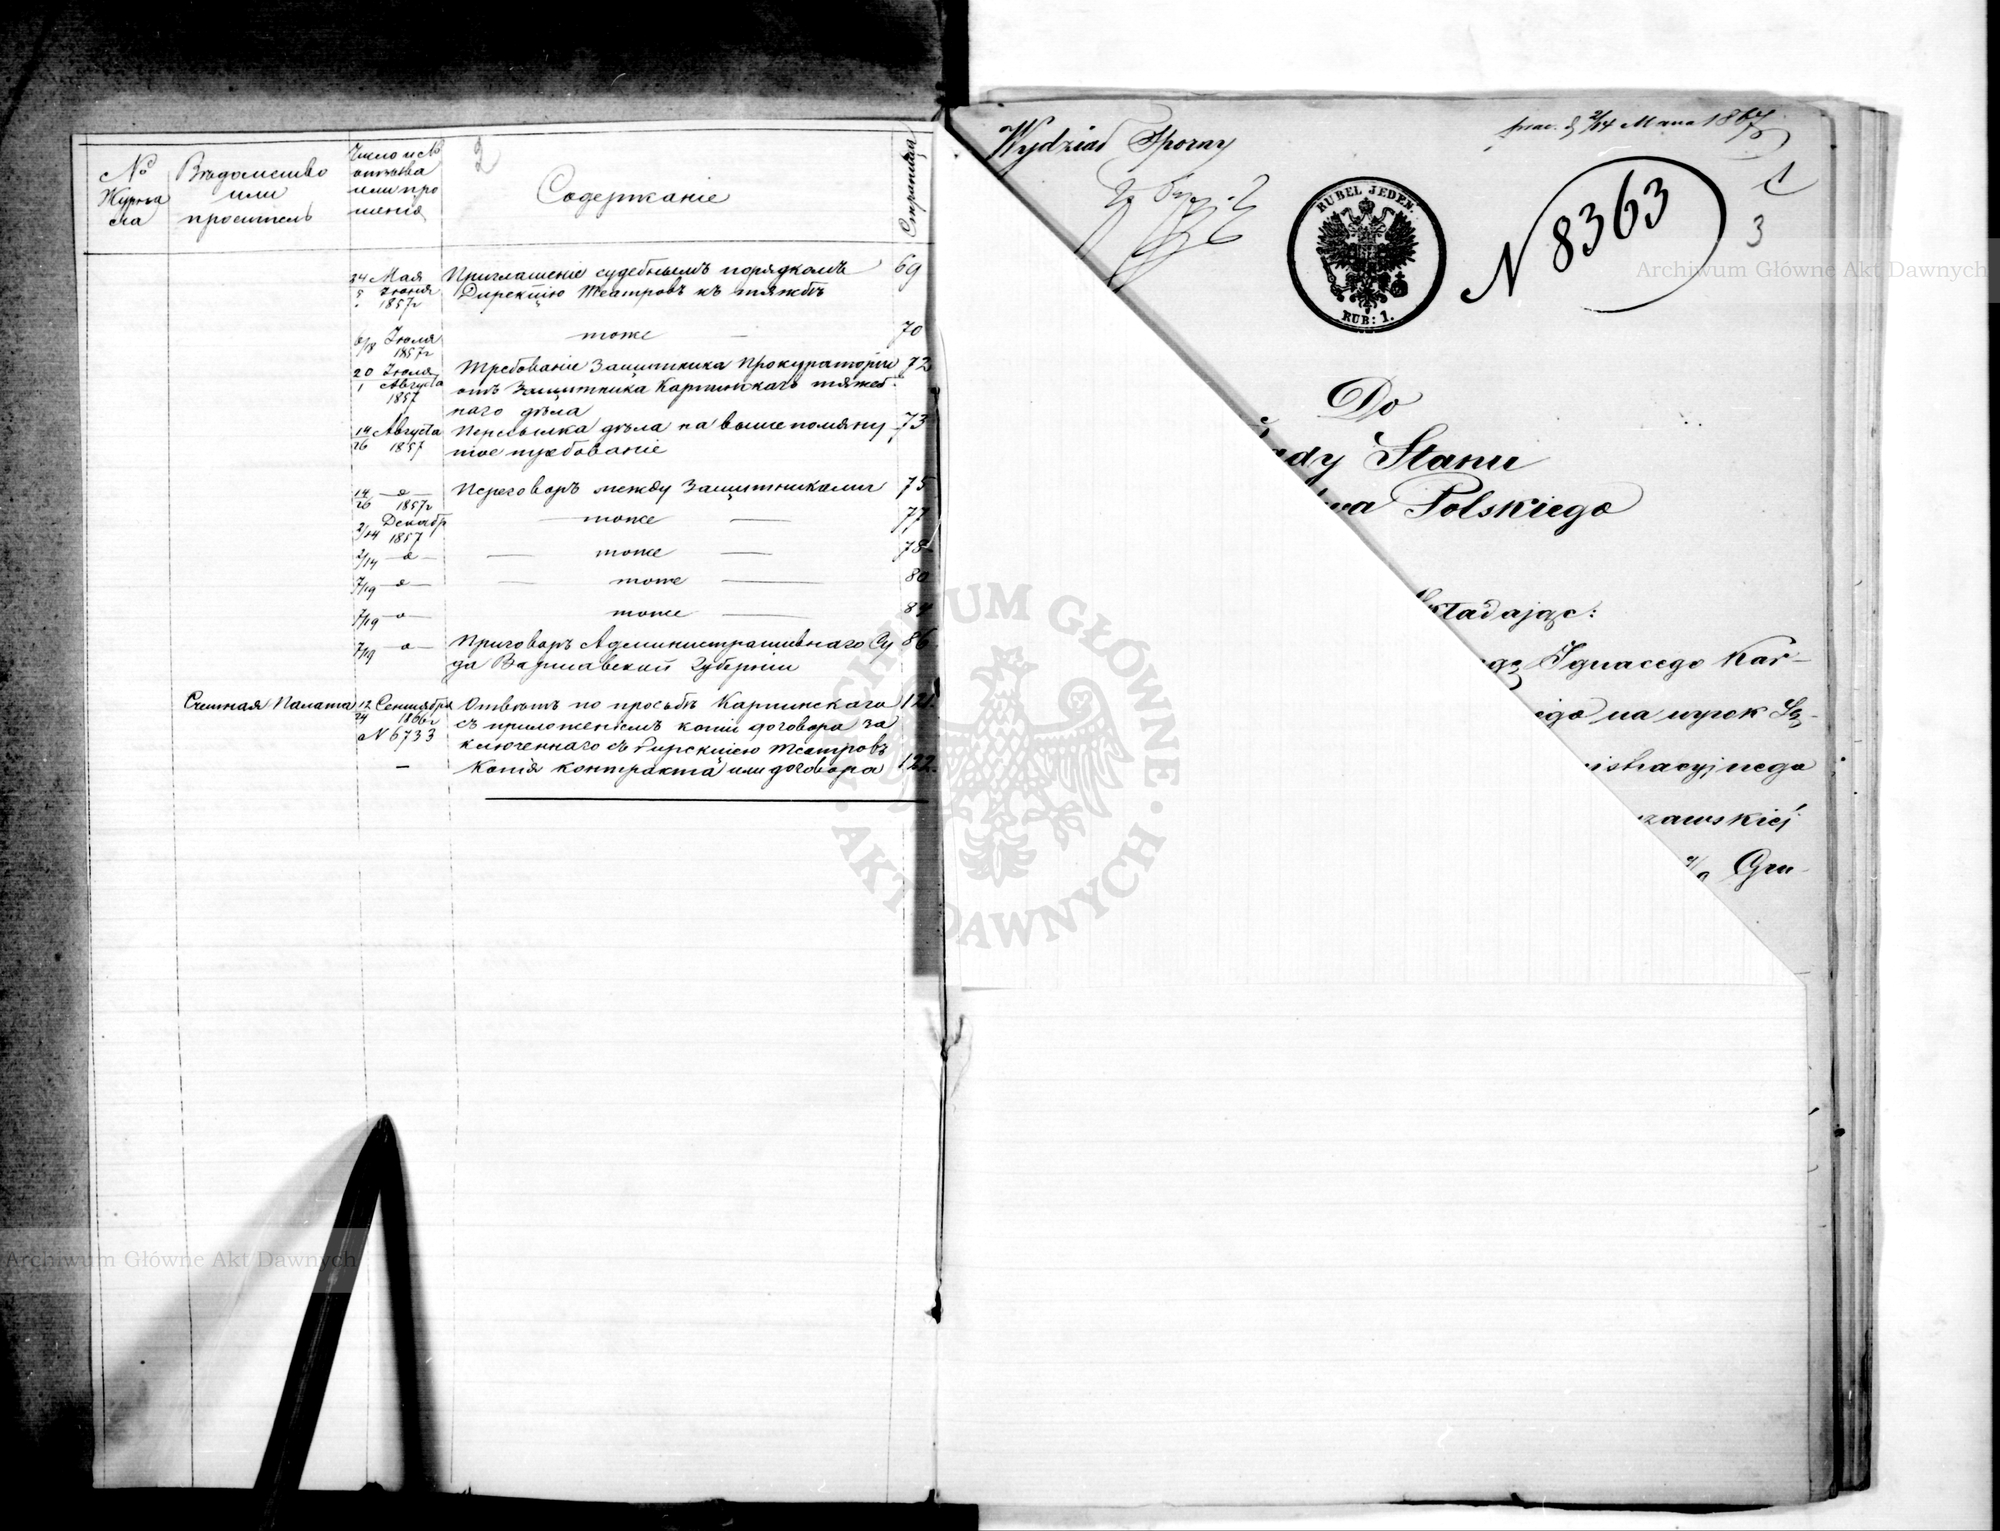 2
№ Журнала
Вѣдомство или проситель
Число и № отзыва или прошенія
Содержаніе
Страница
24 Мая
5 Іюня 1857г
Приглашеніе судебнымъ порядкомъ 69
Дирекцію Театровъ къ тяжбѣ
6/18 Іюля 1857г
тоже — 70
20 Іюля
1 Августа 1857
Требованіе Защитника Прокураторіи 72
отъ Защитника Карпинскаго тяжеб
наго дѣла
14/26 Августа 1857
Пересылка дѣла на вышепомяну 73
тое требованіе
14/26 —"— 1857г
Переговоръ между Защитниками 75
2/14 Декабр 1857
— тоже — 77
2/14 —"—
— тоже — 78
7/19 —"—
— тоже — 80
7/19 —"—
тоже — 84
7/19 —"—
Приговоръ Административнаго Су 86
да Варшавской Губерніи
Счетная Палата
12/24 Сентября 1866г
№ 6733
Отвѣтъ по просьбѣ Карпинскаго 121
съ приложеніемъ копіи договора за
ключеннаго съ Дирекціею Театровъ
— Копія контракта или договора 122
Wydział Sporny
2/14 Marca 1867
1
3
RUBEL JEDEN.
RUB: 1.
N 8363
Do
ady Stanu
wa Polskiego
kładając:
Ignacego Kar-
ego na wyrok Są-
nistracyjnego
szawskiej
Gru-
Archiwum Główne Akt Dawnych
ARCHIWUM GŁÓWNE · AKT DAWNYCH ·
Archiwum Główne Akt Dawnych